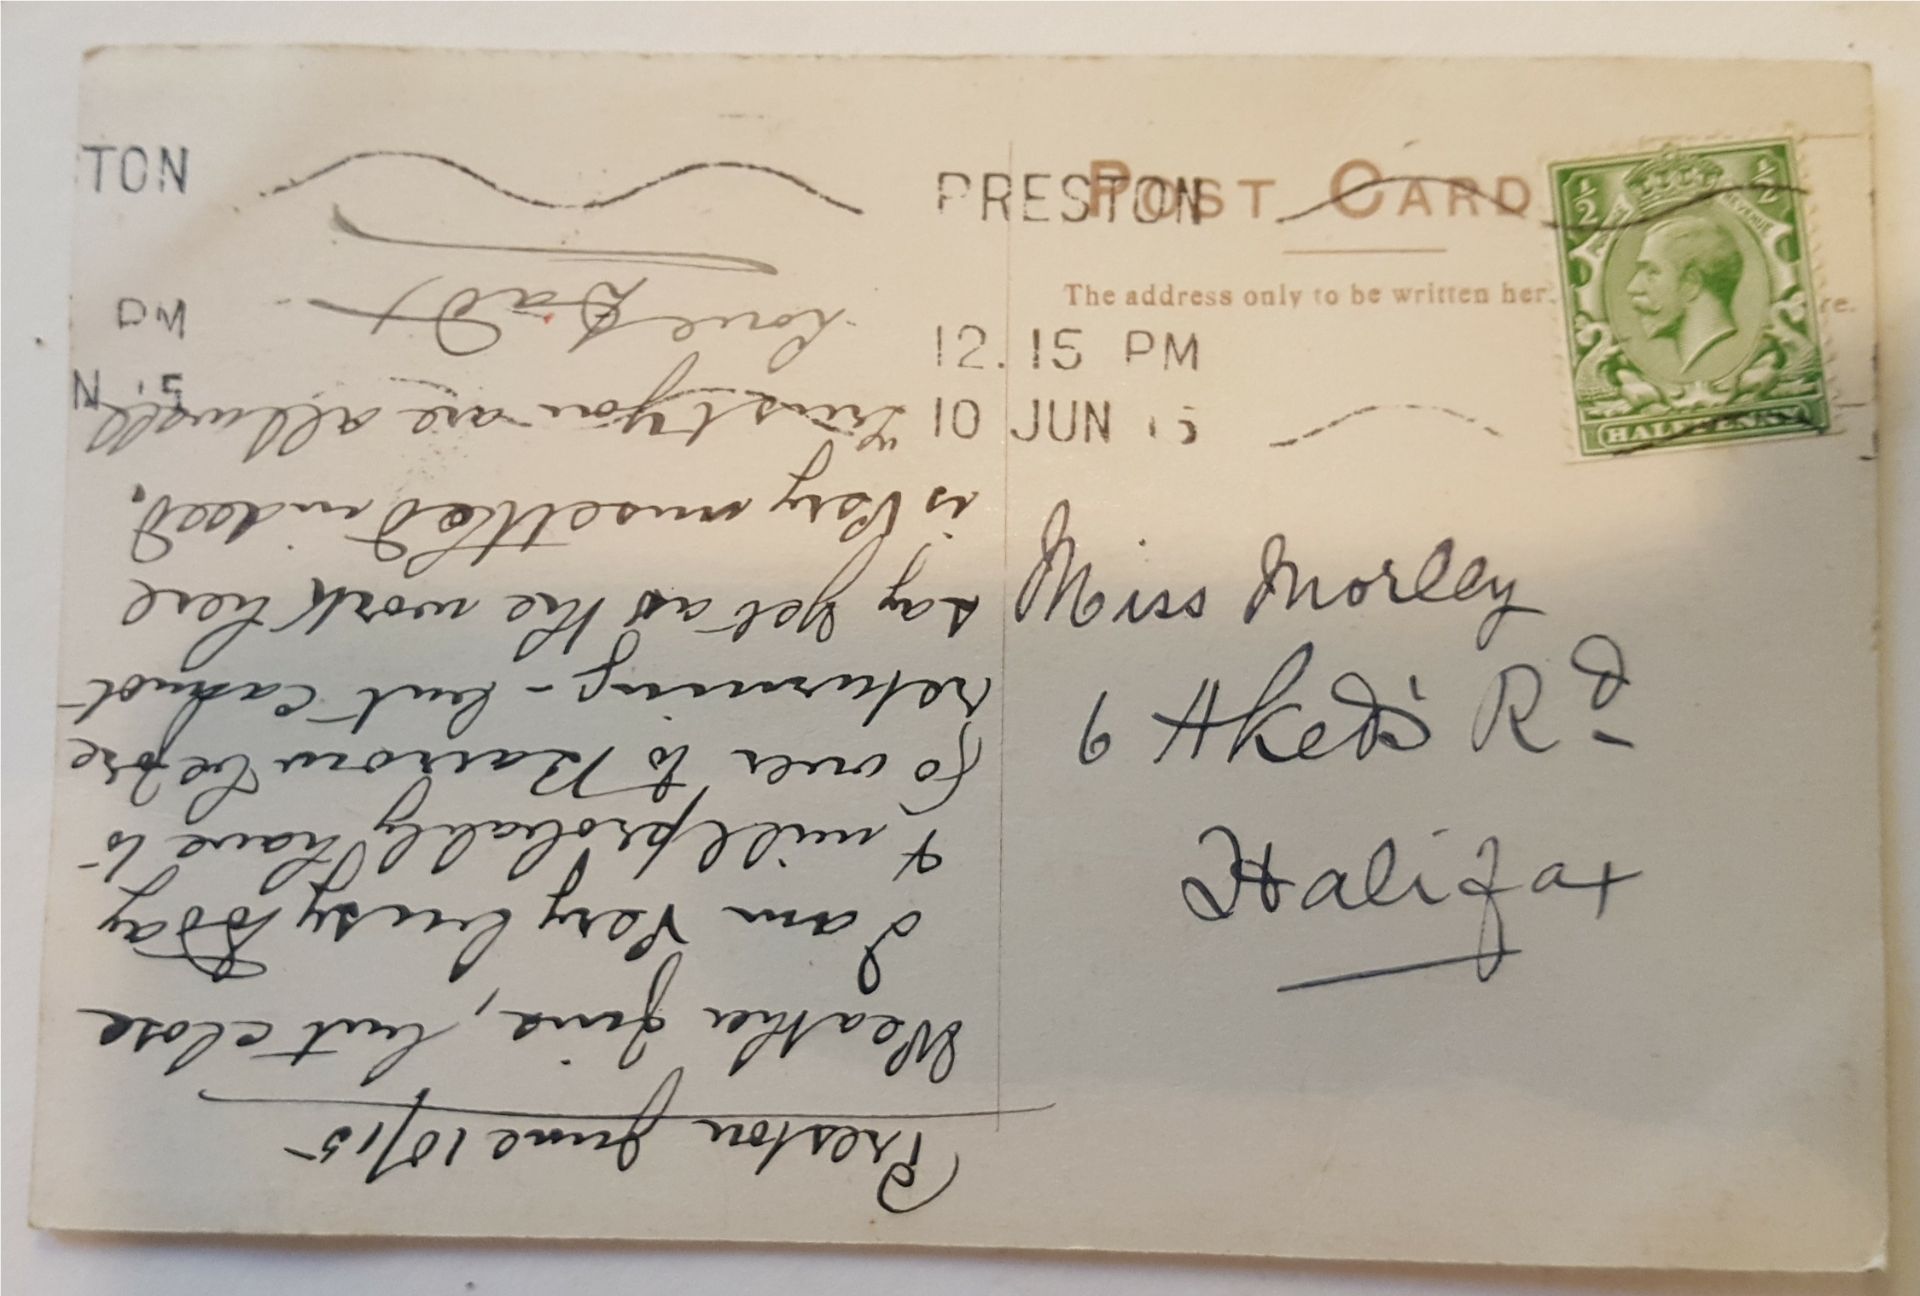 TON
PM
N 15
PRESTON
12.15 PM
10 JUN 15
POST CARD
The address only to be written here.
½ ½
HALFPENNY
Miss Morley
9 Aked's Rd
Halifax
Preston June 10/15
Weather fine, but close
I am very busy today
& will probably have to
go over to Barrow before
returning - but cannot
say yet as the work here
is very unsettled indeed.
Trust you are all well
Love
Dad